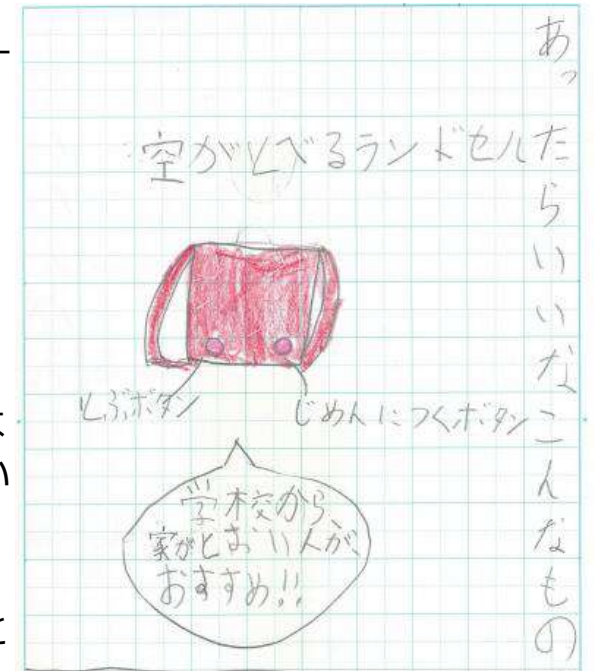 あったらいいなこんなもの
空がとべるランドセル
とぶボタン
じめんにつくボタン
学校から、
家がとおい人が、
おすすめ!!